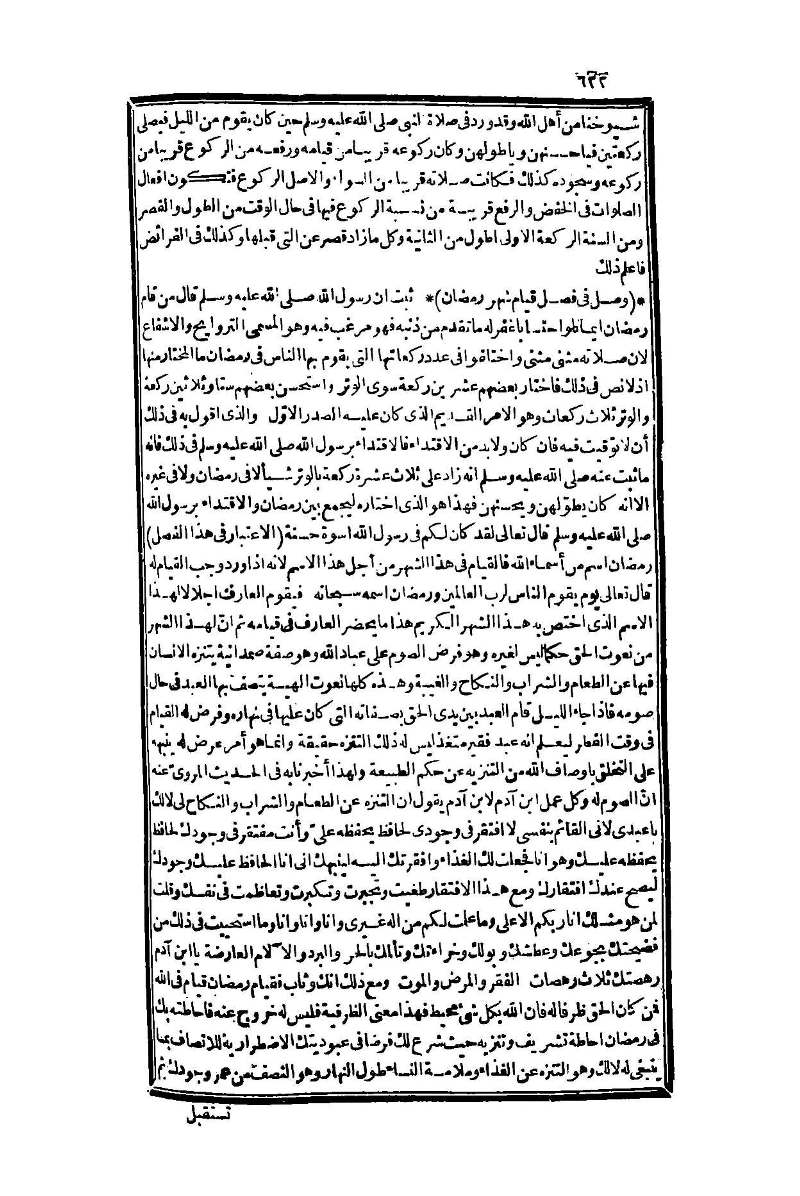 ٦٢٢
شيوخنا من أهل الله وقد ورد فى صلاة النبى صلى الله عليه وسلم حين كان يقوم من الليل فيصلى
ركعتين فيها حسنهن وياطولهن وكان ركوعه قريبا من قيامه ورفعه من الركوع قريبا من
ركوعه وسجوده كذلك فكانت صلاته قريبا من السواء والاصل الركوع فتكون افعال
الصلوات فى الخفض والرفع قريبة من نسبة الركوع فيها فى حال الوقت من الطول والقصر
ومن السنة الركعة الاولى اطول من الثانية وكل ما زاد قصر عن التى قبلها وكذلك فى الفرائض
فاعلم ذلك
*(وصل فى فصل قيام شهر رمضان)* ثبت ان رسول الله صلى الله عليه وسلم قال من قام
رمضان ايمانا واحتسابا غفر له ما تقدم من ذنبه فهو مرغب فيه وهو المسمى التراويح والاشفاع
لان صلاته مثنى مثنى واختلفوا فى عدد ركعاتها التى يقوم بها الناس فى رمضان ما المختار منها
اذ لا نص فى ذلك فاختار بعضهم عشرين ركعة سوى الوتر واستحسن بعضهم ستا وثلاثين ركعة
والوتر ثلاث ركعات وهو الامر القديم الذى كان عليه الصدر الاول والذى اقول به فى ذلك
أن لا توقيت فيه فان كان ولابد من الاقتداء فالاقتداء برسول الله صلى الله عليه وسلم فى ذلك فانه
ما ثبت عنه صلى الله عليه وسلم انه زاد على ثلاث عشرة ركعة بالوتر شيأ لا فى رمضان ولا فى غيره
الا انه كان يطولهن ويحسنهن فهذا هو الذى اختاره ليجمع بين رمضان والاقتداء برسول الله
صلى الله عليه وسلم قال تعالى لقد كان لكم فى رسول الله اسوة حسنة (الاعتبار فى هذا الفصل)
رمضان اسم من أسماء الله فالقيام فى هذا الشهر من أجل هذا الاسم لانه اذا ورد وجب القيام له
قال تعالى يوم يقوم الناس لرب العالمين ورمضان اسمه سبحانه فيقوم العارف اجلالا لهذا
الاسم الذى اختص به هذا الشهر الكريم هذا ما يحضر العارف فى قيامه ثم انّ لهذا الشهر
من نعوت الحق حكما ليس لغيره وهو فرض الصوم على عباد الله وهو صفة صمدانية يتنزه الانسان
فيها عن الطعام والشراب والنكاح والغيبة وهذه كلها نعوت الهية يتصف بها العبد فى حال
صومه فاذا جاء الليل قام العبد بين يدى الحق بصفاته التى كان عليها فى نهاره وفرض له القيام
فى وقت الفطر ليعلم انه عبد فقير متغذ ليس له ذلك التنزه حقيقة وانما هو أمر عرض له ينبهه
على التخلق باوصاف الله من التنزيه عن حكم الطبيعة ولهذا أخبرنا به فى الحديث المروىّ عنه
انّ الصوم له وكل عمل ابن آدم لابن آدم يقول ان التنزه عن الطعام والشراب والنكاح لى لا لك
يا عبدى لانى القائم بنفسى لا افتقر فى وجودى لحافظ يحفظه علىّ وأنت مفتقر فى وجودك لحافظ
يحفظه عليك وهو انا فجعلت لك الغذاء وافقرتك اليه لينبهك انى انا الحافظ عليك وجودك
ليصح عندك افتقارك ومع هذا الافتقار طغيت وتجبرت وتكبرت وتعاظمت فى نفسك وقلت
لمن هو مثلك انا ربكم الاعلى وما علمت لكم من اله غيرى وانا وانا وانا وما استحييت فى ذلك من
فضيحتك بجوعك وعطشك وبولك وخراءتك وتألمك بالحر والبرد والآلام العارضة يا ابن آدم
رهصتك ثلاث رهصات الفقر والمرض والموت ومع ذلك انك وثاب فقيام رمضان قيام فى الله
فمن كان الحق ظرفا له فان الله بكل شئ محيط فهذا معنى الظرفية فليس له خروج عنه فاحاطته بك
فى رمضان احاطة تشريف وتنزيه حيث شرع لك فرضا فى عبوديتك الاضطرارية للاتصاف بما
ينبغى له لا لك وهو التنزه عن الغذاء وملامسة النساء طول النهار وهو النصف من عمر وجودك ثم
تستقبل